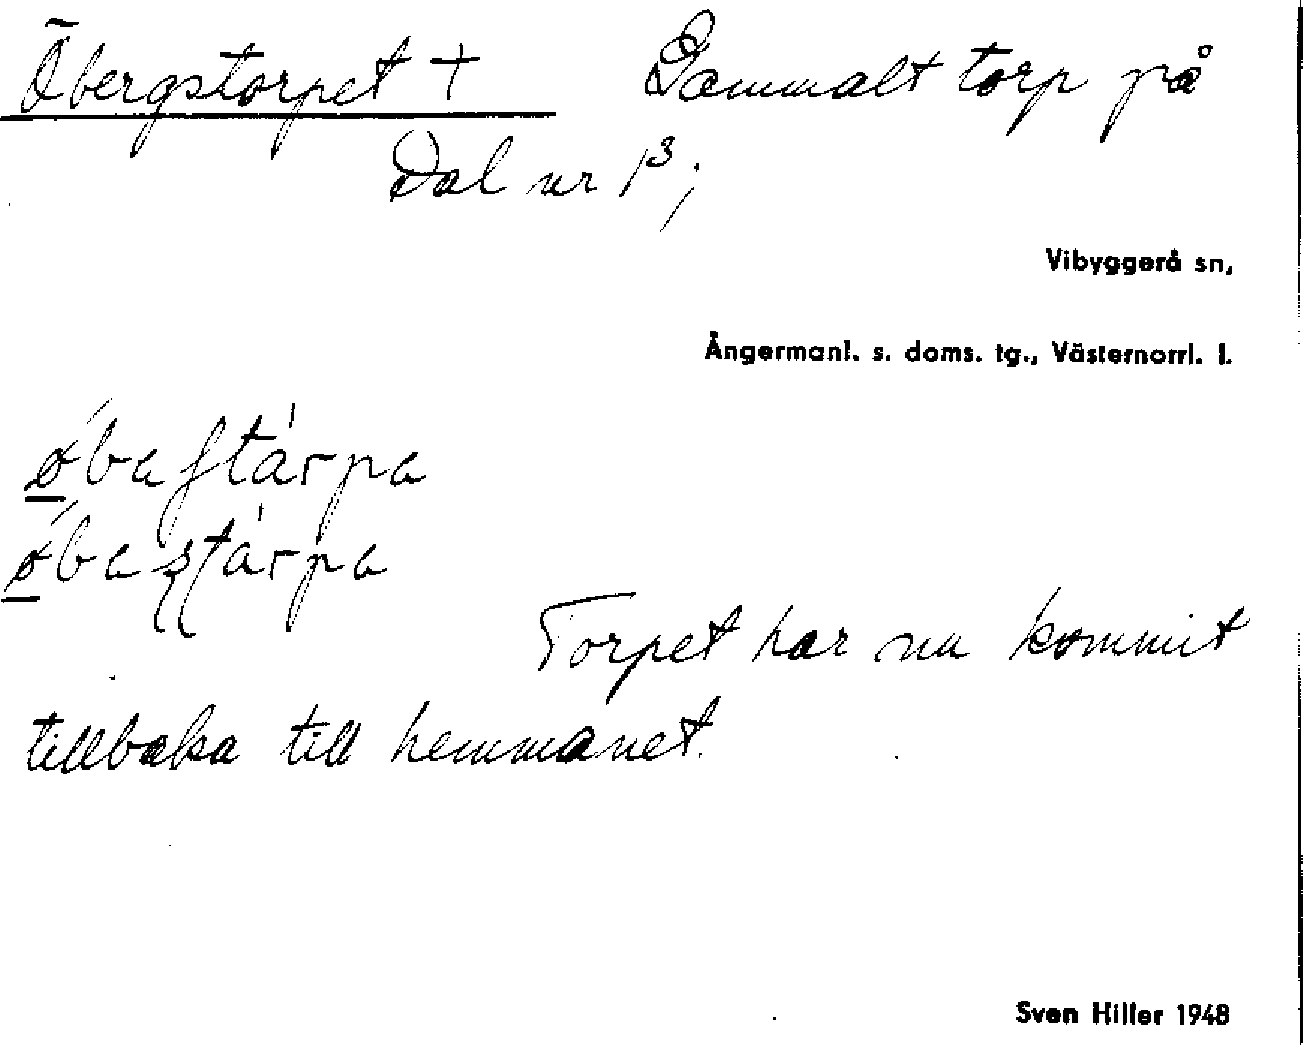 Öbergstorpet + Gammalt torp på
Dal nr 1³;
Vibyggerå sn,
Ångermanl. s. doms. tg., Västernorrl. l.
Torpet har nu kommit
tillbaka till hemmanet.
Sven Hiller 1948